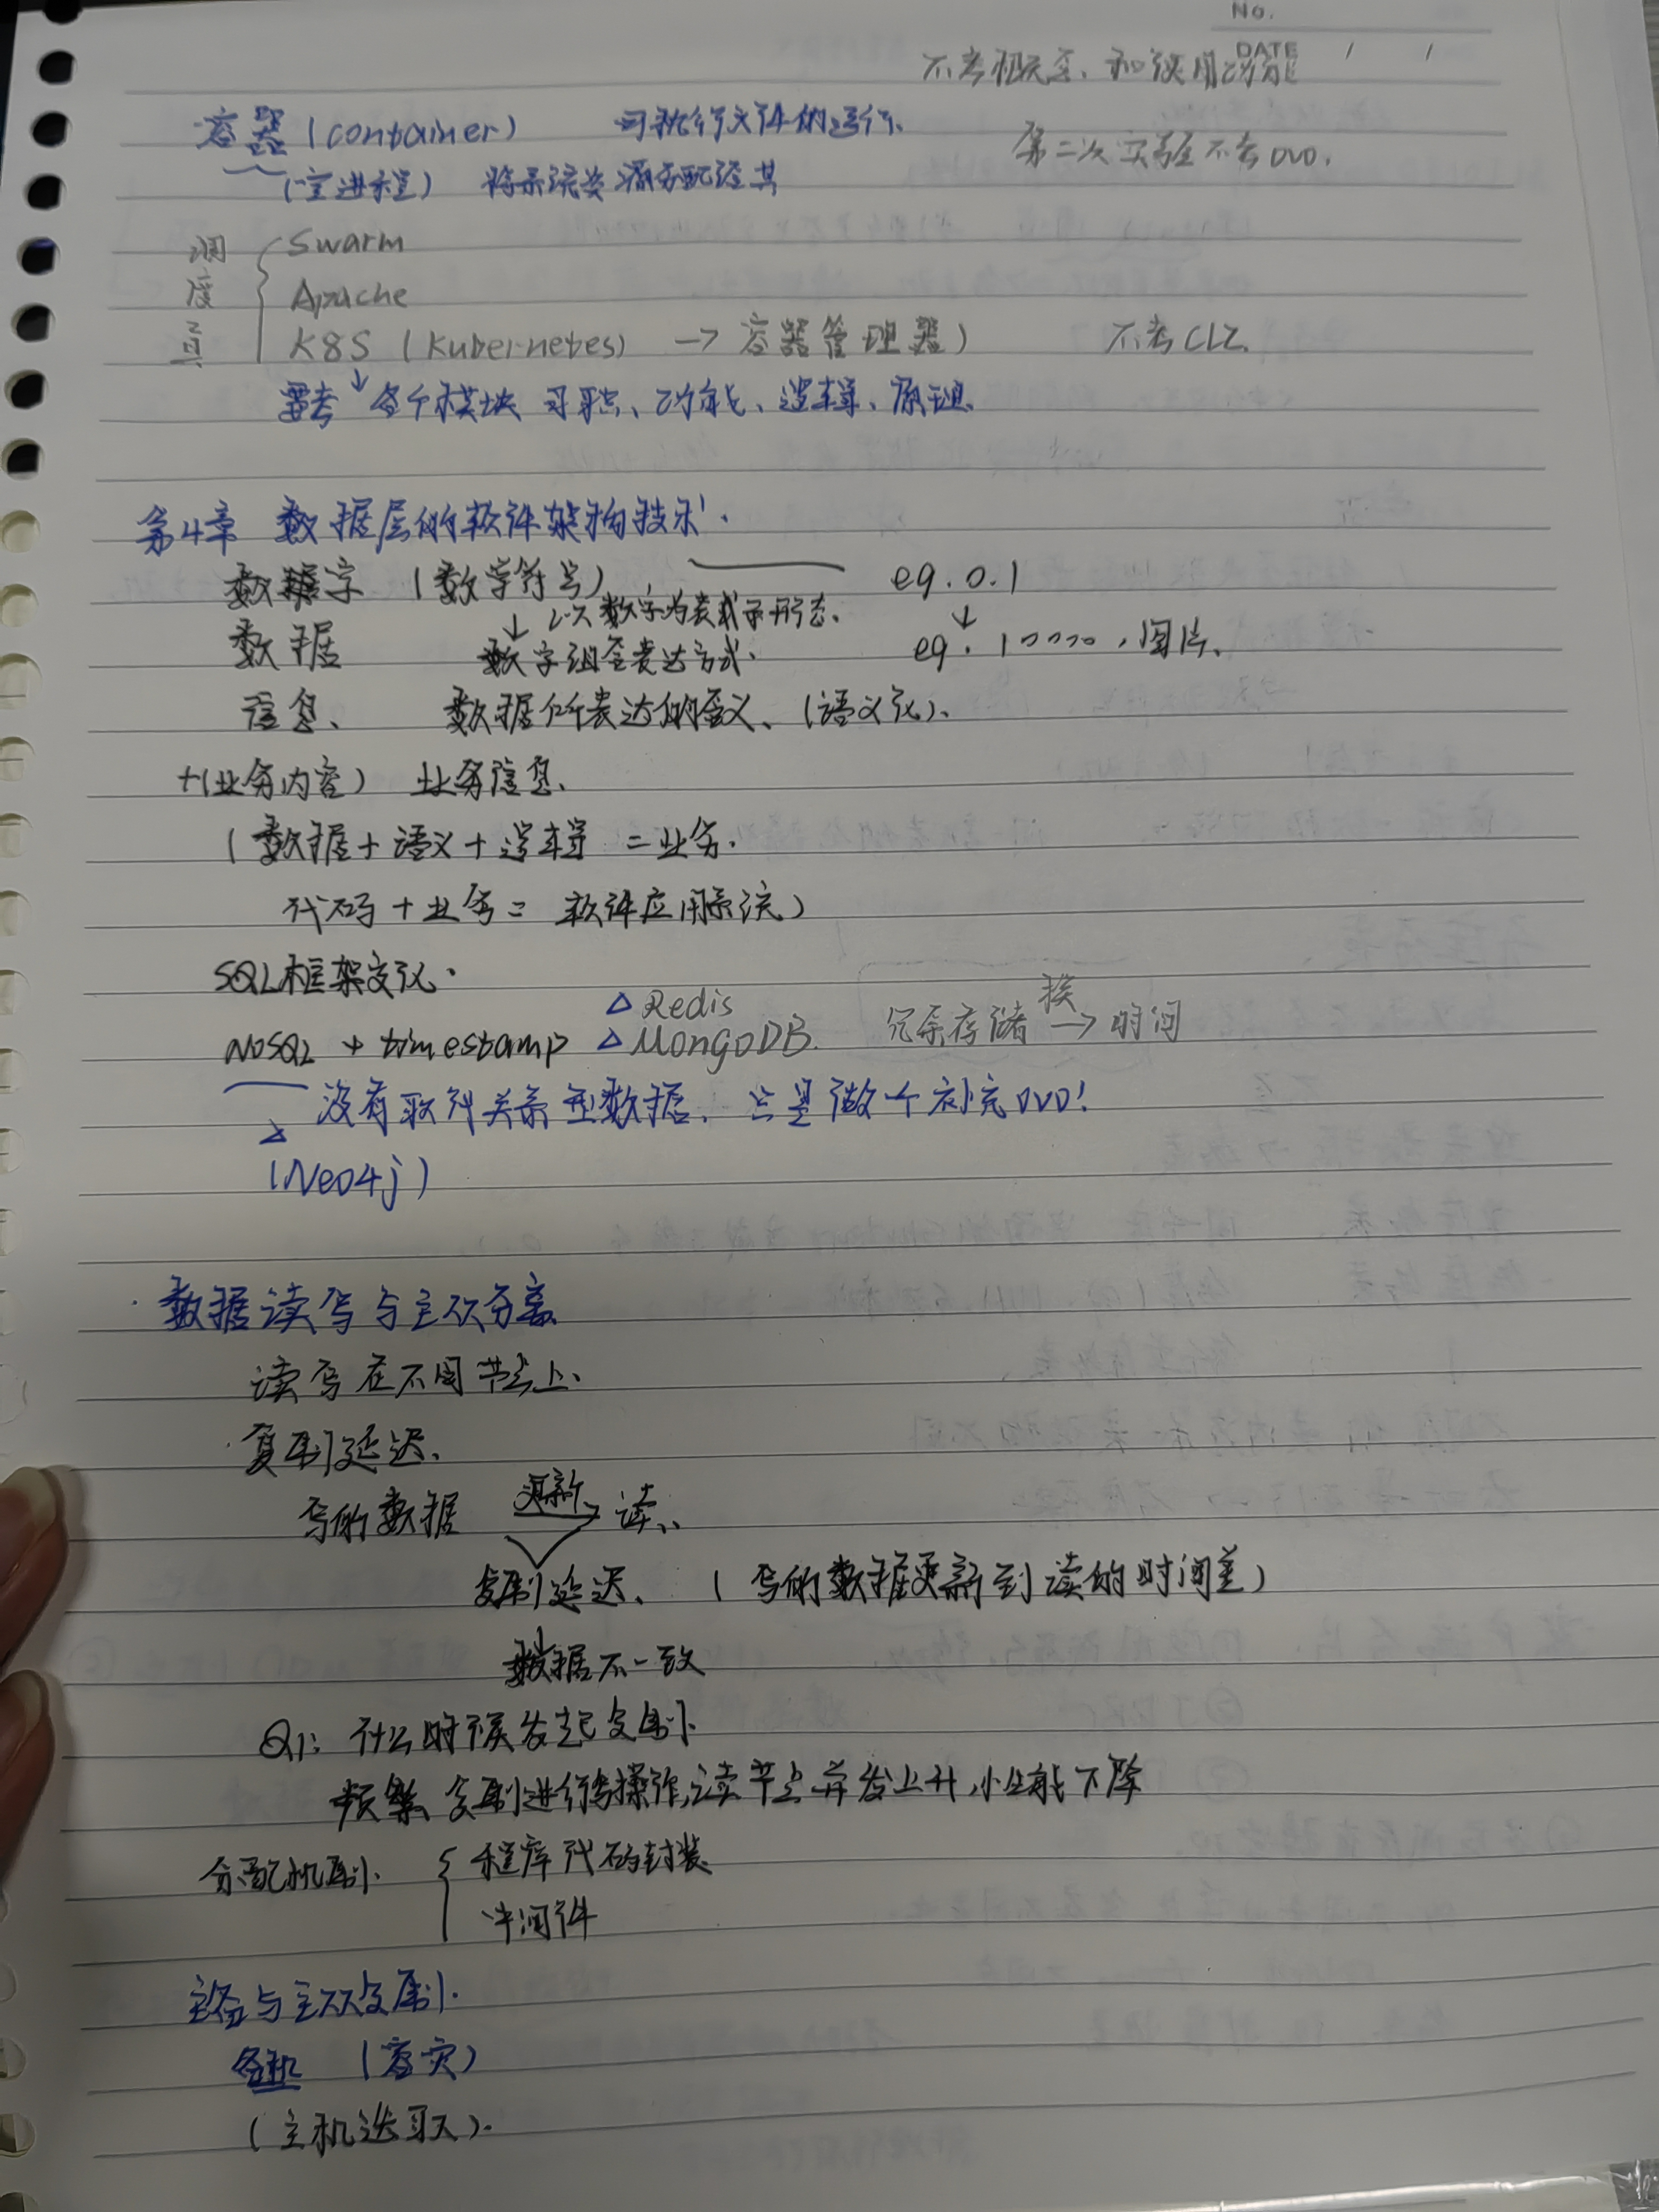 No.
DATE / /
不考概念、和使用功能
容器(container) 可执行文件的运行、
第二次实验不考OVO.
(宝进程) 将系统资源分配给其
调度工具
Swarm
Apache
K8S (Kubernetes) → 容器管理器)
不考CLI.
要考↓各个模块 司职、功能、逻辑、原理.
第4章 数据层的软件架构技术.
数字 (数字符号) eg. 0.1
↓ 以数字为表示形态. ↓
数据 数字组合表达方式. eg. 10000,图片、
信息、 数据所表达的含义、(语义化)、
+(业务内容) 业务信息、
(数据+语义+逻辑 =业务.
代码+业务= 软件应用系统)
SQL框架变化.
△Redis
NoSQL + timestamp △MongoDB. 冗余存储 换→ 时间
没有取代关系型数据, 只是做个补充OVO!
△
(Neo4j)
·数据读写与主从分离
读写在不同节点上、
·复制延迟、
写的数据 更新→ 读、
复制延迟、 (写的数据更新到读的时间差)
数据不一致
Q1: 什么时候发起复制
频繁复制进行写操作,读节点并发上升,性能下降
分配机制 { 程序代码封装
中间件
主备与主从复制.
备机 (容灾)
(主机选取).